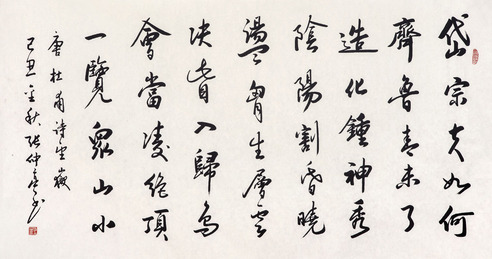 岱宗夫如何
齊魯青未了
造化鍾神秀
陰陽割昏曉
盪胷生層雲
決眥入歸鳥
會當凌絕頂
一覽眾山小
唐杜甫詩望嶽
己丑金秋張仲亭書